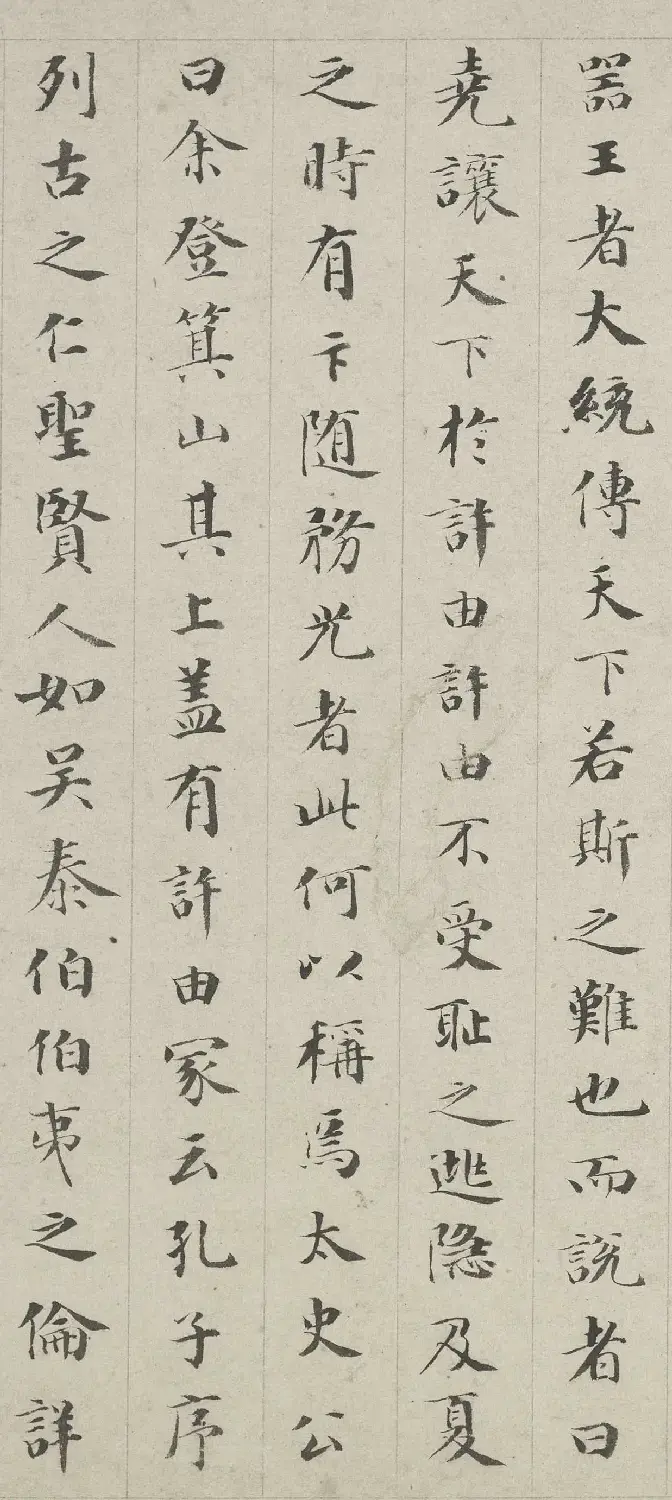 器王者大統傳天下若斯之難也而説者曰
堯讓天下於許由許由不受耻之逃隐及夏
之時有卞随務光者此何以稱焉太史公
曰余登箕山其上盖有許由冢云孔子序
列古之仁聖賢人如吴泰伯伯夷之倫詳